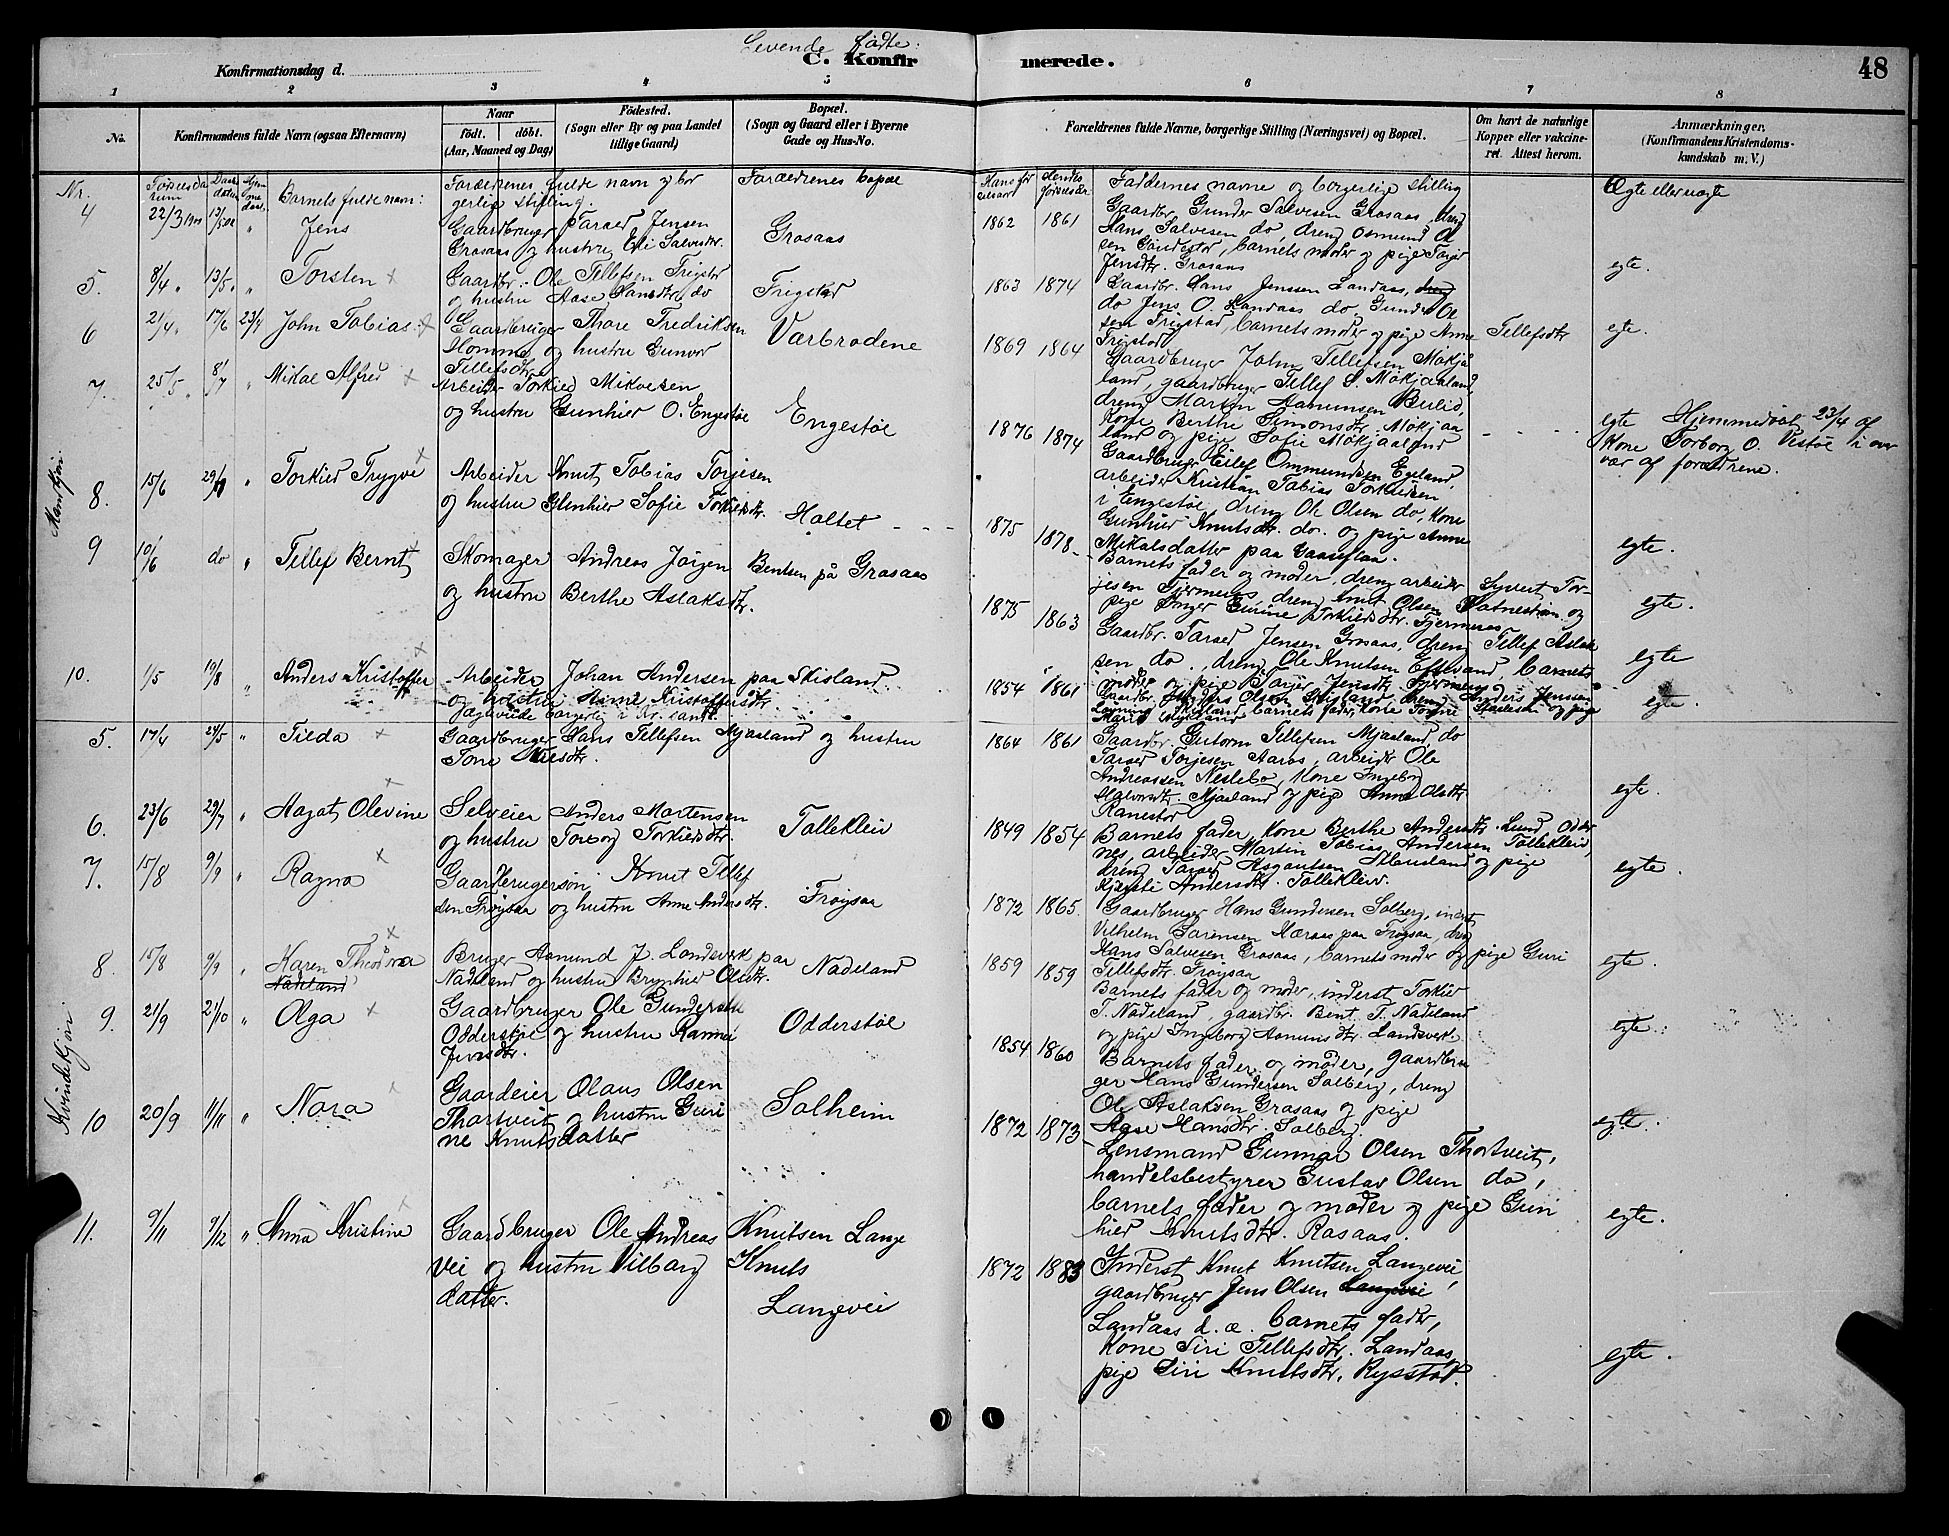 Levende fødte:
C. Konfirmerede.
48
Konfirmationsdag d.
1 2 3 4 5 6 7 8
No.
Konfirmandens fulde Navn (ogsaa Efternavn)
Naar
födt. döbt.
(Aar, Maaned og Dag)
Födested.
(Sogn eller By og paa Landet tillige Gaard)
Bopæl.
(Sogn og Gaard eller i Byerne Gade og Hus-No.
Forældrenes fulde Navne, borgerlige Stilling (Næringsvei) og Bopæl.
Om havt de naturlige Kopper eller vakcineret. Attest herom.
Anmærkninger.
(Konfirmandens Kristendomskundskab m. V.)
Nr.
Barnets fulde navn:
Forældrenes fulde navn og borgerlig stilling.
Forældrenes bopæl
Faddernes navne og borgerlige stilling
Egte eller uegte
Mankjön
4 22/3 Jens
Gaardbruger Tarald Jensen
Grosaas og hustru Eli Salvesdtr.
Grosaas
1862 1861
Gaardbr. Gunder Salvesen Grosaas, dreng
Hans Salvesen do, dreng Osmund Olsen
barnets moder og pige
Jensdtr. Grosaas
egte.
5. 8/4 13/5 " Torsten
Gaardbr. Ole Tellefsen Frigstad
og hustru Aase Hansdtr. do
Frigstad
1863 1874
Gaardbr. Hans Jenssen Landaas,
do Jens O. Landaas do, Gunder Olsen
Frigstad, barnets moder og pige Anne Tellefsdtr
Frigstad
egte.
6 21/4 17/6 23/4 John Tobias
Gaardbruger Thore Fredriksen
Homme og hustru Gunvor
Tellefsdtr.
Varbrodene
1869 1864
Gaardbruger John Tellefsen Mökjaaland,
gaardbruger Tellef S. Mökjaaland,
dreng Martin Aanunsen Birelid,
Kone Berthe Simonsdtr. Mökjaaland
og pige Sofie Mökjaaland
egte Hjemmedöbt 23/4 af
Kone Torborg O. Vestöl i overvær
af forældrene.
7. 25/5 8/7 " Mikal Alfred
Arbeider Torkild
og hustru Gunhild O. Engestöl
Engestöl
1876 1874
Gaardbruger Eilef Ommundsen Egeland,
arbeider Kristian Tobias Torkildsen
i Engestöl, dreng Ole Olsen do, Kone
Gunhild Knutsdtr. do. og pige Anne
Mikalsdatter paa
egte.
8. 15/6 Torkild Trygve
Arbeider Knut Tobias Torjesen
og hustru Glenhild Sofie Torkildsdtr.
Holtet
1875 1878
Barnets fader og moder, dreng arbeider Syvert Torjesen
Fjermeros, dreng Knut Olsen Vatnestrøm og
pige Inger Gurine Torkildsdtr. Fjermeros
egte.
9 10/6 do " Tellef Bernt
Skomager Andreas Jörgen Bentsen på Grosaas
og hustru Berthe Aslaksdtr.
1875 1863
Gaardbr. Tarald Jensen Grosaas, dreng Tellef Aslaksen
do., dreng Ole Knutsen Eftevand, barnets
moder og pige Borger Jensdtr. Fjermeros
egte
10. 1/5 19/8 " Anders Kristoffer
Arbeider Johan Andersen paa Skisland
og hustru Anne Kristoffersdtr.
1854 1861
Gaardbr. Anders Olsen Skisland, dreng Anders Jenssen
Skisland, barnets fader, Kone Torine og pige
Marie
egte.
Kvindekjön
5. 17/4 24/5 " Tilda
Gaardbruger Hans Tellefsen Mjaaland og hustru
Tone Nilsdtr.
1864 1861
Gaardbr. Gutorm Tellefsen Mjaaland, do
Tarald Torjesen Aaros, arbeider Ole
Andreassen Neslebo, Kone Ingeborg
Halvorsdtr. Mjaaland og pige Anne Olsdtr
Ranestøl
egte.
6. 23/6 29/7 " Aagot Olevine
Selveier Anders Mortensen
og hustru Torborg Torkildsdtr.
Tolleklev
1849 1854
Barnets fader, Kone Berthe Andersdtr. Lund Oddernes,
arbeider Martin Tobias Andersen Tolleklev,
dreng Tarald og pige
Kjersti Andersdtr. Tolleklev.
egte.
7. 15/8 9/9 " Ragna
Gaardbrugersøn Knut Tellefsen
Fröysaa og hustru Anne Andersdtr.
Fröysaa
1872 1865.
Gaardbruger Hans Gundersen Solberg, inderst
Vilhelm Sørensen paa Fröysaa, dreng
Hans Salvesen Grosaas, barnets moder og pige Guri
Tellefsdtr. Fröysaa
egte.
8. 15/8 9/9 " Karen Theodora
Nadeland
Bruger Aanund J. Landsverk paa
Nadeland og hustru Brynhild Olsdtr.
Nadeland
1859 1859
Barnets fader og moder, inderst Torkild
T. Nadeland, gaardbr. Bent T. Nadeland
og pige Ingeborg Aanunsdtr. Landsverk
egte.
9. 21/9 21/10 " Olga
Gaardbruger Ole Gundersen
Odderstöl og hustru
Jensdtr.
Odderstöl
1854 1860
Barnets fader og moder, gaardbruger
Hans Gundersen Solberg, dreng
Ole Aslaksen Grosaas og pige
Aase Hansdtr. Solberg.
egte.
10 20/9 11/11 " Nora
Gaardeier Olaus Olsen
Thortveit og hustru Gurine
Knutsdatter
Solheim
1872 1873
Lensmand Gunnar Olsen Thortveit,
handelsbestyrer Gustav Olsen do,
barnets fader og moder og pige Gunhild
Knutsdtr. Rosaas.
egte.
11. 9/11 9/12 " Anna Kristine
Gaardbruger Ole Andreas Knutsen Langevei
og hustru Vilborg Knutsdatter.
Langevei
1872 1883
Inderst Knut Knutsen Langevei,
gaardbruger Jens Olsen Langevei,
Landaas d. æ. barnets fader,
Kone Siri Tellefsdtr. Landaas,
pige Siri Knutsdtr. Rysstad.
egte.